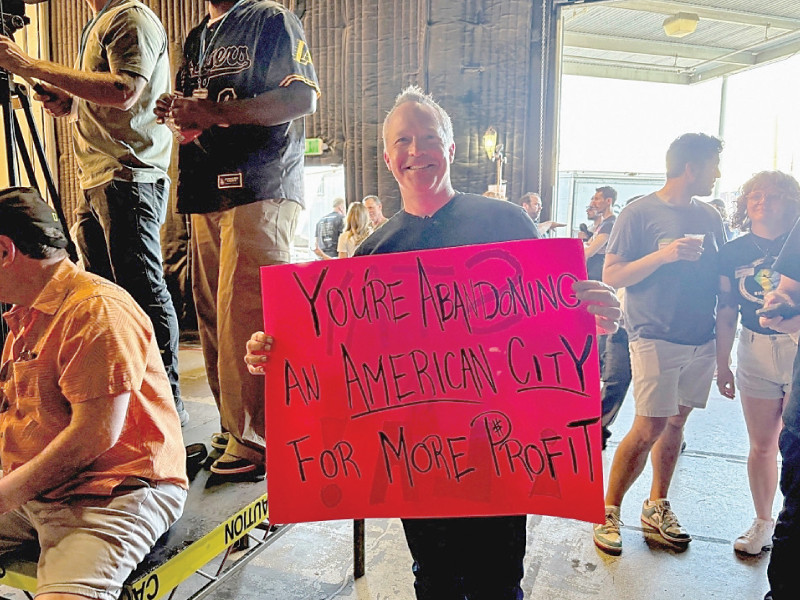 YOU'RE ABANDONING
AN AMERICAN CITY
FOR MORE PROFIT
CAUTION